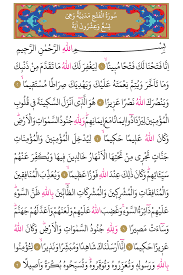 سُورَةُ الْفَتْحِ مَدَنِيَّةٌ وَهِيَ
تِسْعٌ وَعِشْرُونَ آيَةً
بِسْمِ اللّٰهِ الرَّحْمٰنِ الرَّحِيمِ
اِنَّا فَتَحْنَا لَكَ فَتْحًا مُبِينًا لِيَغْفِرَ لَكَ اللّٰهُ مَا تَقَدَّمَ مِنْ ذَنْبِكَ
وَمَا تَاَخَّرَ وَيُتِمَّ نِعْمَتَهُ عَلَيْكَ وَيَهْدِيَكَ صِرَاطًا مُسْتَقِيمًا
وَيَنْصُرَكَ اللّٰهُ نَصْرًا عَزِيزًا هُوَ الَّذِي اَنْزَلَ السَّكِينَةَ فِي قُلُوبِ
الْمُؤْمِنِينَ لِيَزْدَادُوا اِيمَانًا مَعَ اِيمَانِهِمْ وَلِلّٰهِ جُنُودُ السَّمٰوَاتِ وَالْاَرْضِ
وَكَانَ اللّٰهُ عَلِيمًا حَكِيمًا لِيُدْخِلَ الْمُؤْمِنِينَ وَالْمُؤْمِنَاتِ
جَنَّاتٍ تَجْرِي مِنْ تَحْتِهَا الْاَنْهَارُ خَالِدِينَ فِيهَا وَيُكَفِّرَ عَنْهُمْ
سَيِّـَٔاتِهِمْ وَكَانَ ذٰلِكَ عِنْدَ اللّٰهِ فَوْزًا عَظِيمًا وَيُعَذِّبَ الْمُنَافِقِينَ
وَالْمُنَافِقَاتِ وَالْمُشْرِكِينَ وَالْمُشْرِكَاتِ الظَّانِّينَ بِاللّٰهِ ظَنَّ السَّوْءِ
عَلَيْهِمْ دَائِرَةُ السَّوْءِ وَغَضِبَ اللّٰهُ عَلَيْهِمْ وَلَعَنَهُمْ وَاَعَدَّ لَهُمْ جَهَنَّمَ
وَسَاءَتْ مَصِيرًا وَلِلّٰهِ جُنُودُ السَّمٰوَاتِ وَالْاَرْضِ وَكَانَ اللّٰهُ
عَزِيزًا حَكِيمًا اِنَّا اَرْسَلْنَاكَ شَاهِدًا وَمُبَشِّرًا وَنَذِيرًا لِتُؤْمِنُوا
بِاللّٰهِ وَرَسُولِهِ وَتُعَزِّرُوهُ وَتُوَقِّرُوهُ وَتُسَبِّحُوهُ بُكْرَةً وَاَصِيلًا